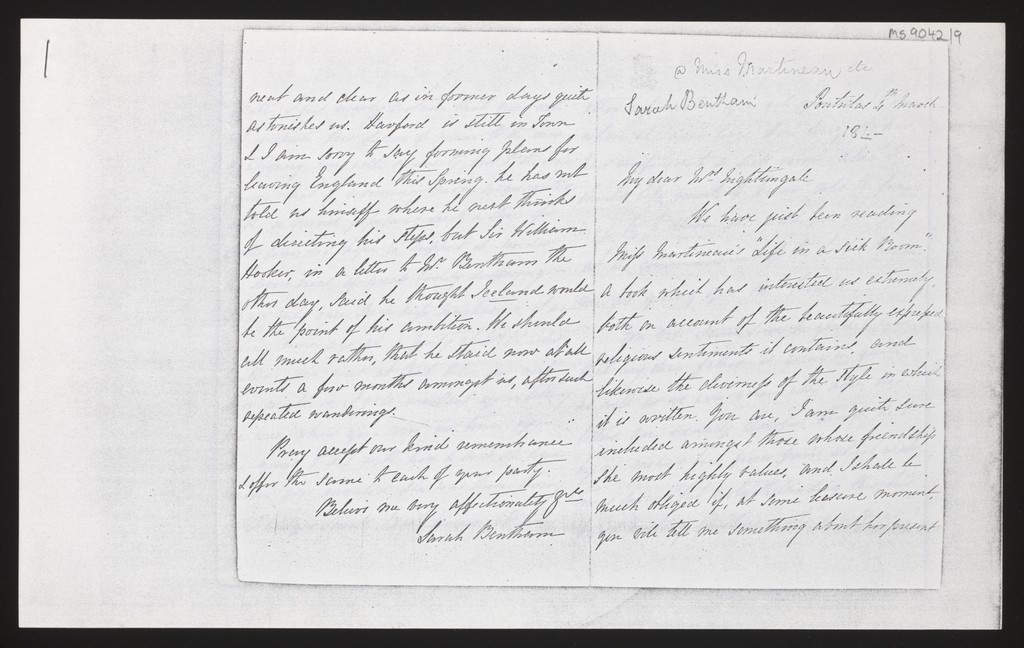 MS 9042/9
neat and clear as in former days quite
astonishes us. Harford is still in Town
& I am sorry to say forming plans for
leaving England this Spring. he has not
told us himself where he next thinks
of directing his steps, but Sir William
Hooker, in a letter to Mr. Bentham the
other day, said he thought Iceland would
be the point of his ambition. We should
all much rather, that he staid now at all
events a few months amongst us, after such
repeated wanderings.
Pray accept our kind remembrance
& offer the same to each of your party.
Believe me very affectionately yrs
Sarah Bentham
Miss Martineau &c
Sarah Bentham Pontrilas 4th March
18
My dear Mrs Nightingale
We have just been reading
Miss Martineau's "Life in a Sick Room".
a book which has interested us extremely,
both on account of the beautifully expressed
religious sentiments it contains, and
likewise the clearness of the style in which
it is written. You are, I am quite sure
included amongst those whose friendship
she most highly values, and I shall be
much obliged if, at some leisure moment,
you will tell me something about her present